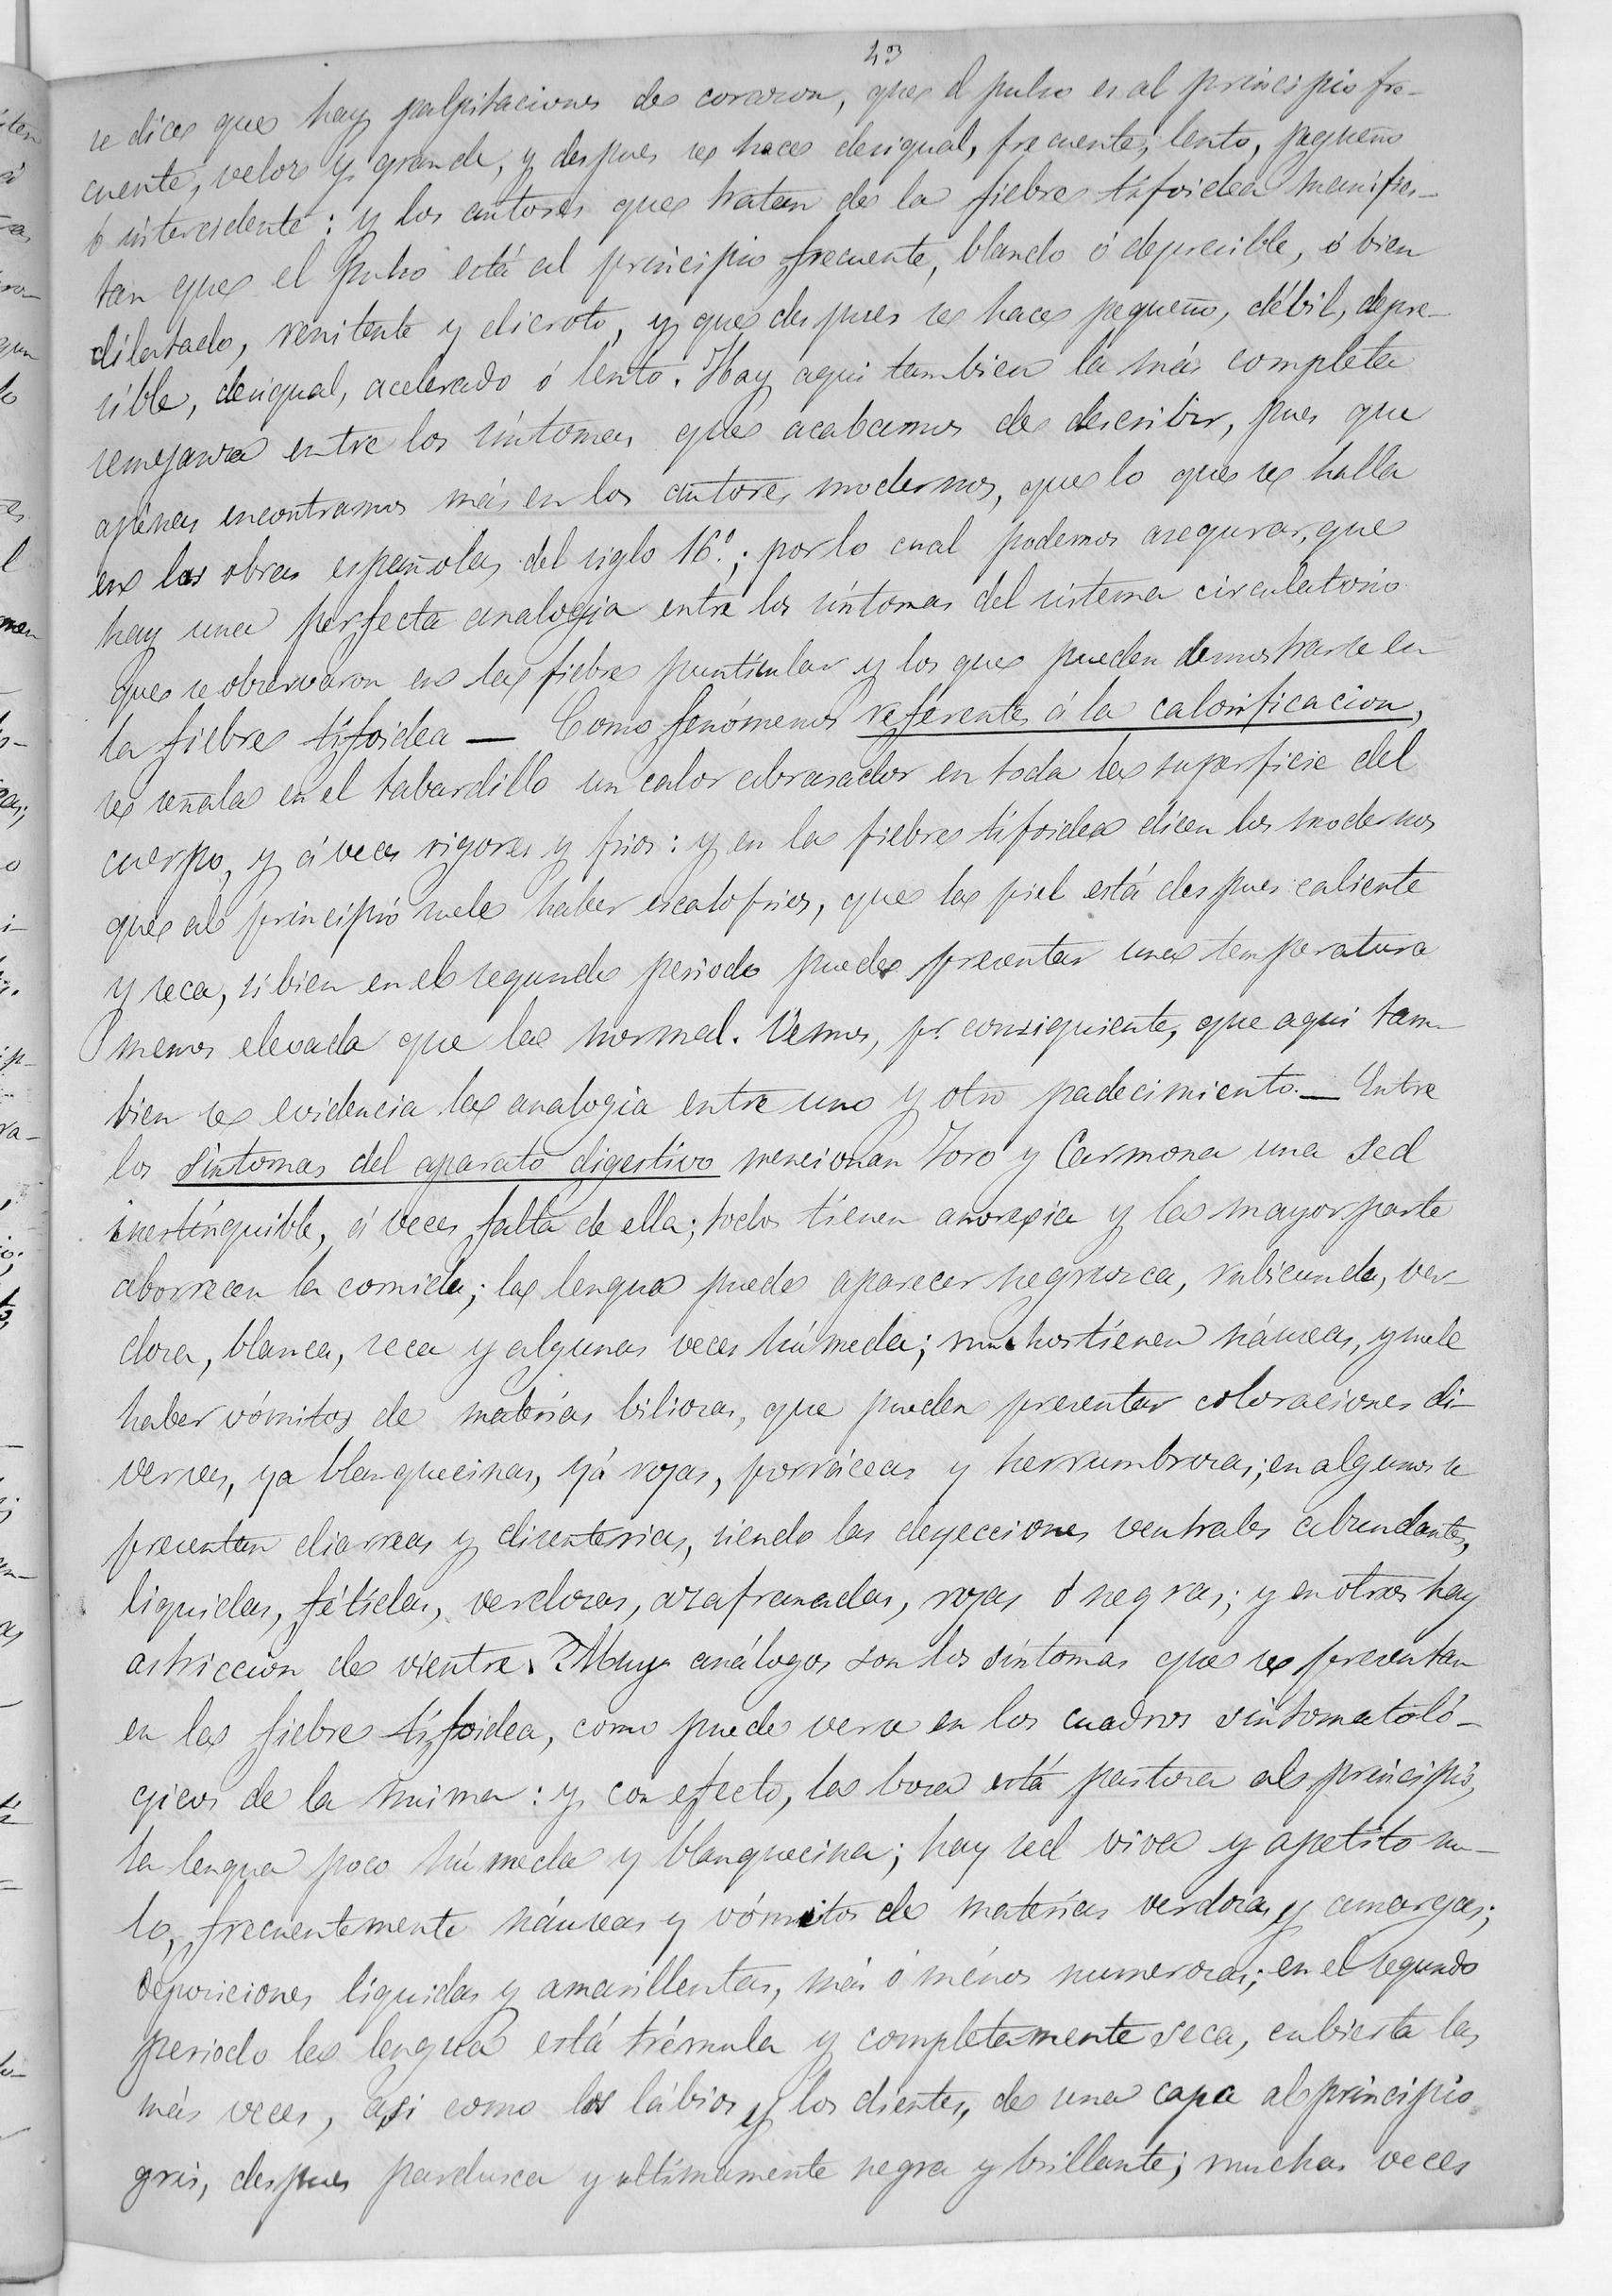 23
se dice que hay palpitaciones de corazon, que el pulso es al principio fre-
cuente, veloz y grande, y despues se hace desigual, frecuente, lento, pequeño
ó intercidente: y los autores que tratan de la fiebre tifoidea manifies-
tan que el pulso está al principio frecuente, blando ó depresible, ó bien
dilatado, renitente y dicroto, y que despues se hace pequeño, débil, depre-
sible, desigual, acelerado ó lento. Hay aqui tambien la más completa
semejanza entre los síntomas que acabamos de describir, pues que
apénas encontramos más en los autores modernos, que lo que se halla
en las obras españolas del siglo 16.º; por lo cual podemos asegurar, que
hay una perfecta analogía entre los síntomas del sistema circulatorio
que se observaron en la fiebre puntícular y los que pueden demostrarse en
la fiebre tifoidea — Como fenómenos referentes á la calorificacion,
se señala en el tabardillo un calor abrasador en toda la superficie del
cuerpo, y á veces rigores y frios: y en la fiebre tifoidea dicen los modernos
que al principio suele haber escalofrios, que la piel está despues caliente
y seca, si bien en el segundo periodo puede presentar una temperatura
menos elevada que la normal. Vemos, pr. consiguiente, que aqui tam-
bien se evidencia la analogia entre uno y otro padecimiento.— Entre
los síntomas del aparato digestivo mencionan Toro y Carmona una sed
inestínguible, á veces falta de ella; todos tienen anorexia y la mayor parte
aborrecen la comida; la lengua puede aparecer negruzca, rubicunda, ver-
dosa, blanca, seca y algunas veces húmeda; muchos tienen náuseas, y suele
haber vómitos de materias biliosas, que pueden presentar coloraciones di-
versas, ya blanquecinas, yá rojas, porráceas y herrumbrosas; en algunos se
presentan diarreas y disenterias, siendo las deyecciones ventrales abundantes,
liquidas, fétidas, verdosas, azafranadas, rojas ó negras; y en otros hay
astriccion de vientre. Muy análogos son los síntomas que se presentan
en la fiebre tifoidea, como puede verse en los cuadros sintomatoló-
gicos de la misma: y con efecto, la boca está pastosa al principio,
la lengua poco húmeda y blanquecina; hay sed viva y apetito nu-
lo, frecuentemente náuseas y vómitos de materias verdosas y amargas;
deposiciones líquidas y amarillentas, más ó ménos numerosas; en el segundo
periodo la lengua está trémula y completamente seca, cubierta las
más veces, asi como los lábios y los dientes, de una capa al principio
gris, despues pardusca y ultimamente negra y brillante; muchas veces